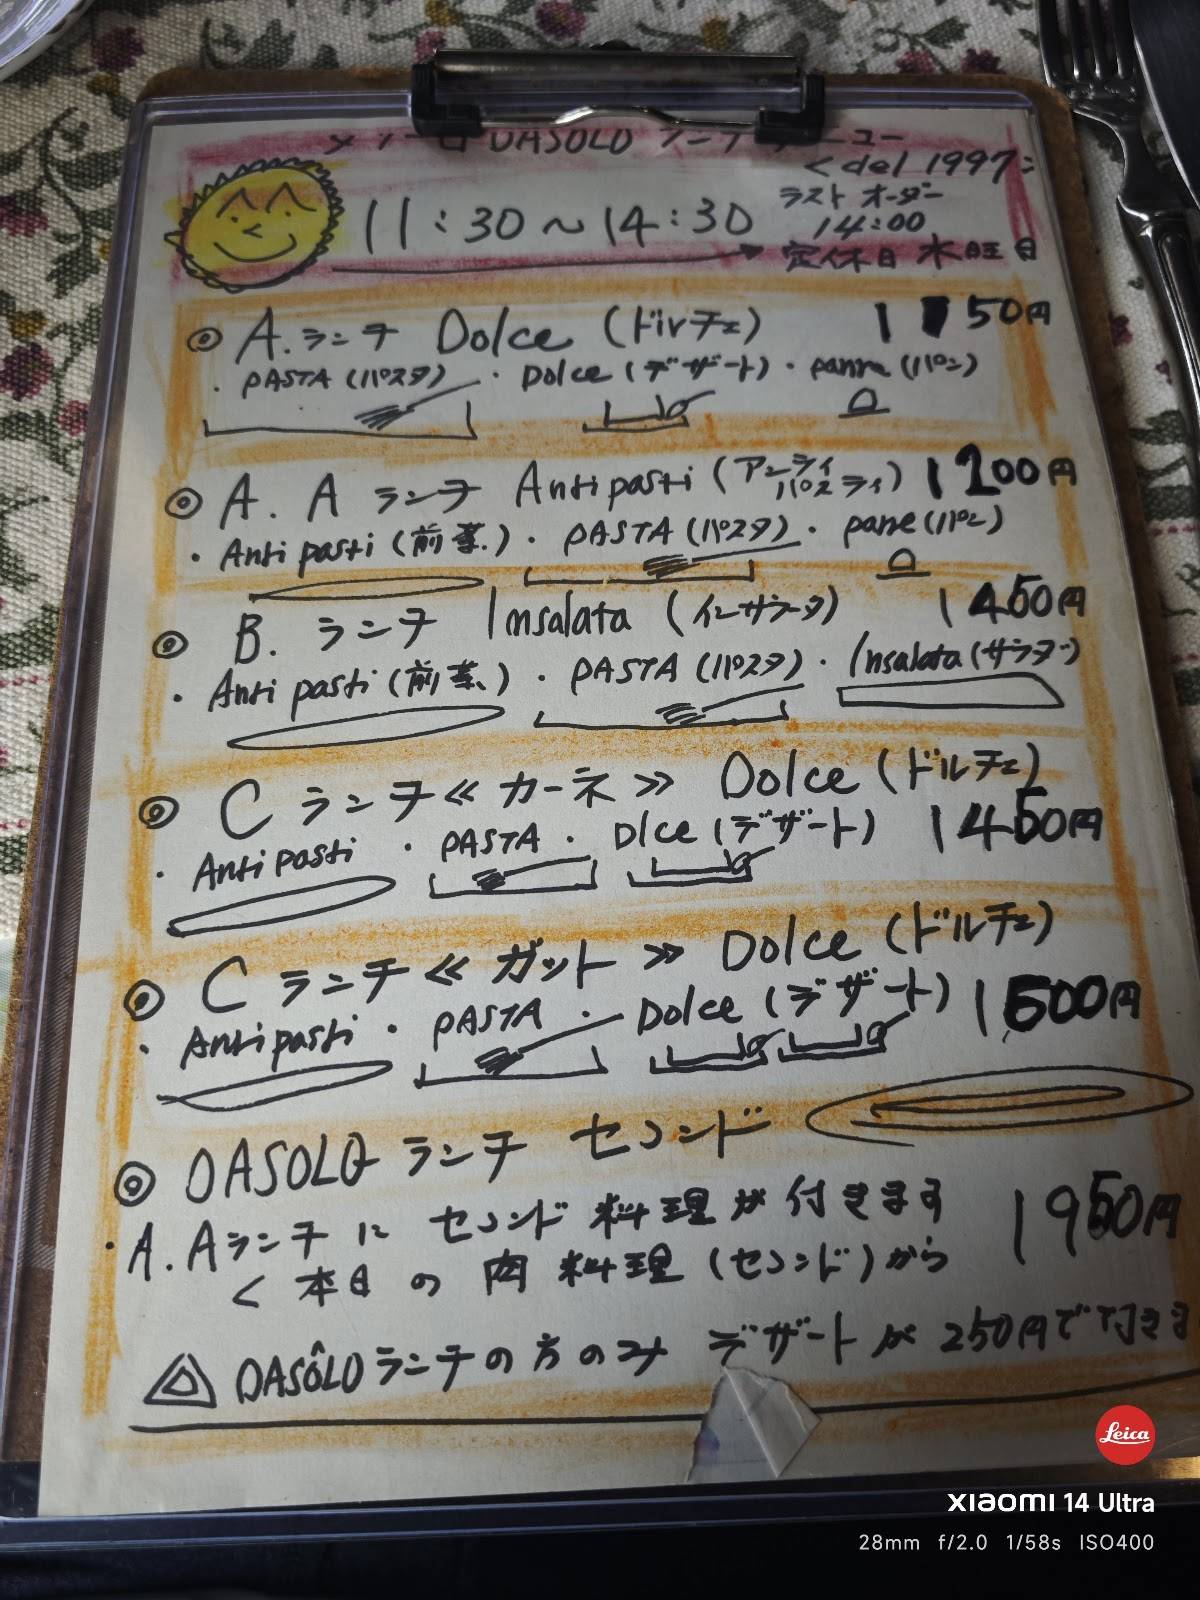 DASOLO ランチメニュー
<del 1997:
11:30～14:30
ラストオーダー
14:00
定休日 水曜日
◎ A.ランチ Dolce (ドルチェ) 1150円
・PASTA (パスタ)・Dolce (デザート)・panne (パン)
◎ A. A ランチ Antipasti (アンティパスティ) 1200円
・Antipasti (前菜)・PASTA (パスタ)・pane (パン)
◎ B. ランチ Insalata (インサラータ) 1450円
・Antipasti (前菜)・PASTA (パスタ)・Insalata (サラダ)
◎ C ランチ≪カーネ≫ Dolce (ドルチェ)
・Antipasti・PASTA・Dlce (デザート) 1450円
◎ C ランチ≪ガット≫ Dolce (ドルチェ)
・Antipasti・PASTA・Dolce (デザート) 1500円
◎ DASOLO ランチ セコンド
・A.Aランチに セコンド 料理が付きます 1950円
<本日の肉料理 (セコンド) から
DASÔLOランチの方のみ デザートが 250円で付きま
Leica
XIAOMI 14 Ultra
28mm f/2.0 1/58s ISO400